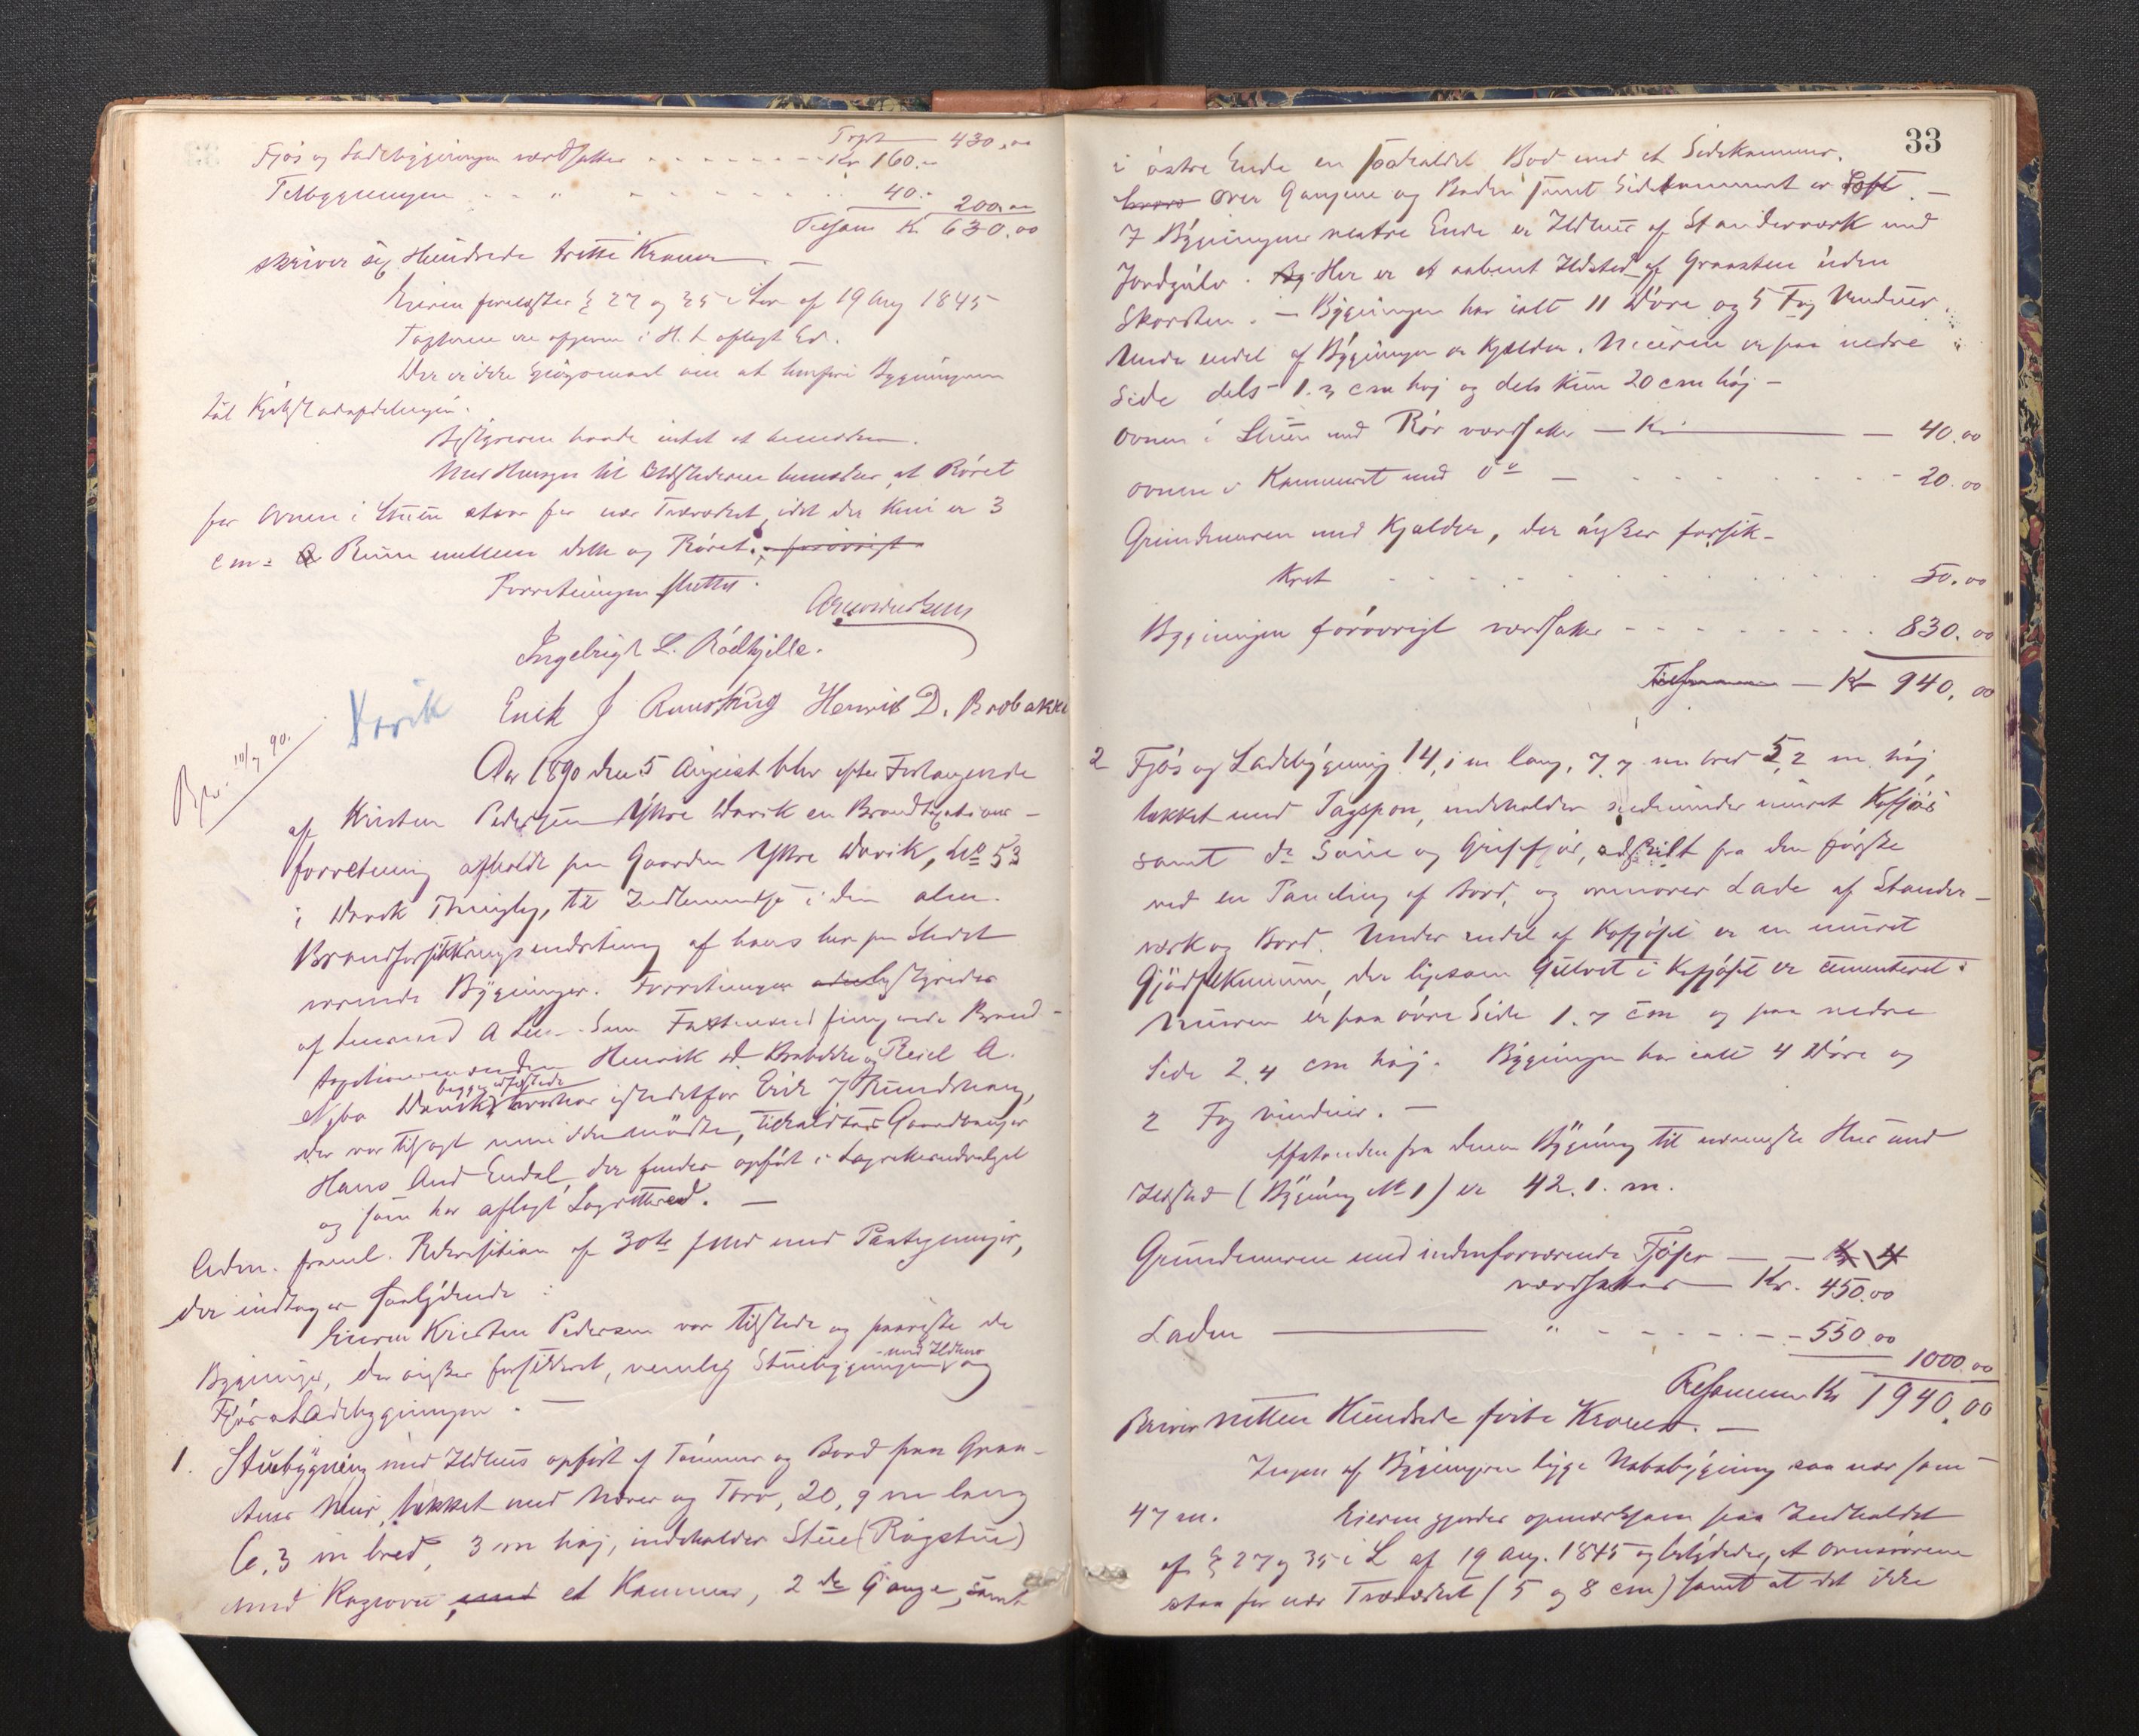 Trpt 430,00
Fjøs og Ladebygningen værdsættes - - - - - - - - Kr 160.-
Tilbygningen - - " - - - - - - - - 40.- 200,00
Tilsam K. 630.00
skriver sex Hundrede tretti Kroner. —
Eieren forelæstes § 27 og 35 i Lov af 19 Aug 1845
Taxterne ere afgivne i H. t. aflagt Ed.
Der er ikke Spørgsmaal om at henføre Bygningerne
til Kjøbstadafdelingen.
Bestyreren havde intet at bemærke.
Med Hensyn til Ildstederne bemærkes, at Røret
fra Ovnen i Stuen staar for nær Træværket, idet der kun er 3
cm: Rum mellem dette og Røret. forøvrigt
Forretningen sluttet.
Ingebrigt L. Rødkjille.
Erik J Rundhug Henrik D. Brobakke
Dravik
Aar 1890 den 5 August blev efter Forlangende
af Kirsten Pedersen Ytre Warik en Brandtaxations-
forretning afholdt paa Gaarden Ytre Warik, No 53
i Warik Thinglag, til Indlemmelse i den alm.
Brandforsikringsindretning af hans her paa Stedet
værende Bygninger. Forretningen bestyredes
af Lensmand A Lee. Som Taxtmænd fungerede Brand-
taxtationsmændene Henrik D. Brobakke og Reiel A.
begge edfæstede
Nybø Warik, istedetfor Erik J Rundhaug,
der var tilsagt men ikke mødte, tilkaldtes Gaardbruger
Hans And Endal, der findes opført i Lagrettesudvalget
og som har aflagt Lagretteed. —
Adm. freml. Rekvisition af 30te f Md med Paategninger,
der indtages saalydende:
Eieren Kristen Pedersen var tilstede og paaviste de
Bygninger, der ønskes forsikret, nemlig Stuebygningen med Ildhus og
Fjøs & Ladebygningen. —
1. Stuebygning med Ildhus opført af Tømmer og Bord paa Graa-
stens Mur, tækket med Næver og Torv, 20,9 m lang
6,3 m bred, 3 m høj, indeholder Stue (Røgstue)
med Kogeovn, med et Kammer, 2 de Gange, samt
33
i østre Ende en saakaldet Bod med et Sidekammer.
hvoro over Gangene og Boden samt Sidekammeret er Loft. —
I Bygningens vestre Ende er Ildhus af Standerværk med
Jordgulv. Her er et aabent Ildsted af Graasten uden
Skorsten. — Bygningen har ialt 11 Døre og 5 Fag Vinduer.
Under endel af Bygningen er Kjælder. Muren er paa nedre
Side dels 1.3 cm høj og dels kun 20 cm høj —
Ovnen i Stuen med Rør værdsættes — Kr — 40.00
Ovnen i Kammeret med do — - - - - - 20.00
Grundmuren med Kjælder, der ønskes forsik-
kret - - - - - - - - - - 50.00
Bygningen forøvrigt værdsættes - - - - - - - - 830.00
Tilsammen — Kr 940,00
2 Fjøs og Ladebygning 14,1 m lang, 7,7 m bred 5,2 m høj,
tækket med Tagspon, indeholder nedenunder muret Kofjøs
samt do Saue og Grisefjøs, adskilt fra den første
ved en Paneling af Bord, og ovenover Lade af Stander-
værk og Bord. Under endel af Kofjøset er en muret
Gjødselkum, der ligesom Gulvet i Kofjøset er cementeret.
Muren er paa øvre Side 1.7 cm og paa nedre
Side 2.4 cm høj. Bygningen har ialt 4 Døre og
2 Fag Vinduer. —
Afstanden fra denne Bygning til nærmeste Hus med
Ildsted (Bygning No 1) er 42.1. m.
Grundmuren med indenforværende Fjøser — — Kr 4
værdsættes — Kr. 450.00
Laden — " - - - - - - 550.00
1000.00
Tilsammen Kr 1940.00
skriver nitten Hundrede førte Kroner. —
Ingen af Bygningerne ligge Nabobygning saa nær som
47 m. Eieren gjordes opmærksom paa Indholdet
af § 27 og 35 i L af 19 Aug. 1845 og betydedes, at Ovnsrørene
staa for nær Træværket (5 og 8 cm) samt at det ikke